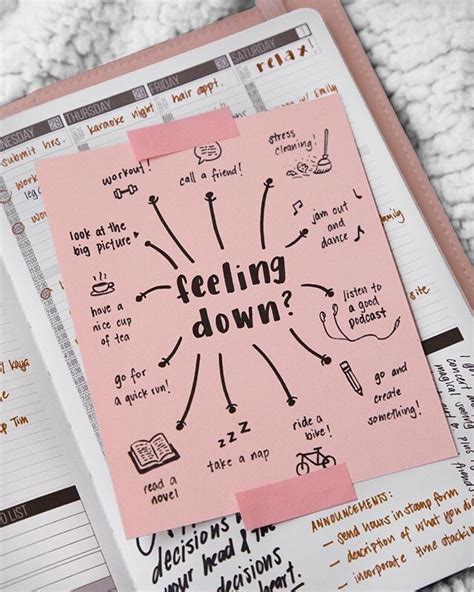 THURSDAY
FRIDAY
SATURDAY
submit hrs.
karaoke night
hair appt.
relax!
workout!
call a friend!
stress
cleaning!
look at the
big picture
jam out
and
dance
feeling
down?
have a
nice cup
of tea
listen to
a good
podcast
go for
a quick run!
go and
create
something!
read a
novel
zzz
take a nap
ride a
bike!
decisions
your head & the
decisions
ANNOUNCEMENTS:
- send hours in stamp form
- description of what you di
- incorporate time stackin